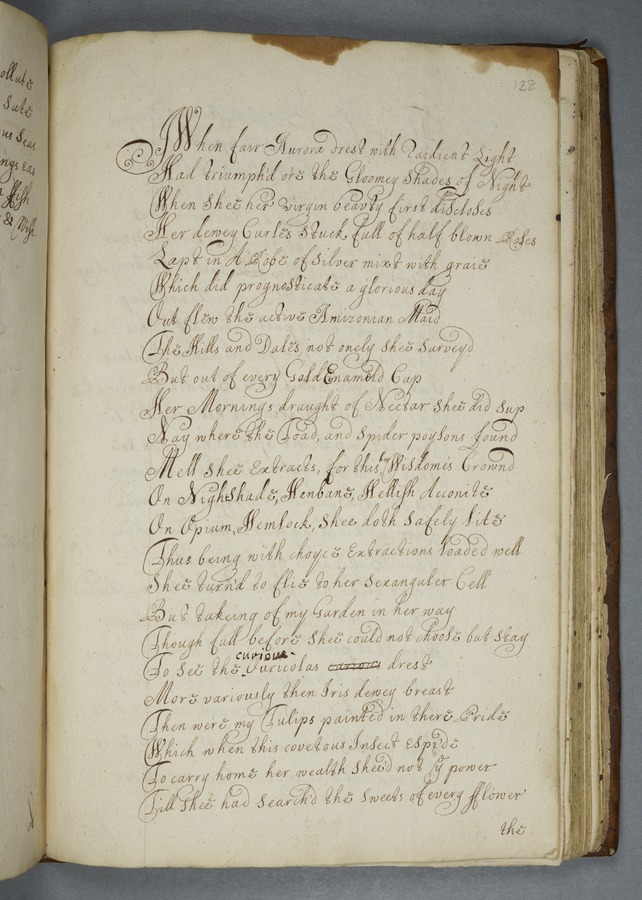 128
When fair Aurora drest with Raidient Light
Had triumph'd ore the Gloomey Shades of Night
When Shee her virgin beavty first discloses
Her dewey Curles Stuck full of half blown Roses
Lapt in A Robe of Silver mixt with graie
Which did prognosticate a glorious day
Out flew the active Amizonian Maid
The Hills and Dales not onely Shee Survey'd
But out of every Gold Enameld Cup
Her Mornings draught of Nectar Shee did Sup
Nay where the Toad, and Spider poysons found
Mell Shee Extracts, for this her Wisdome's Crownd
On NighShade, Henbane, Hellish Aconite
On Opium, Hemlock, Shee doth Safely lite
Thus being with choyce Extractions loaded well
Shee turn'd to flie to her Sexanguler Cell
But takeing of my Garden in her way
Though full before Shee could not choose but Stay
To See the curious Auricolas drest
More variously then Iris dewey breast
Then were my Tulips painted in there Pride
Which when this covetous Insect Espide
To carry home her wealth Shee'd not ye power
Till Shee had Search'd the Sweets of every fflower
the
ollute
Sute
us Seas